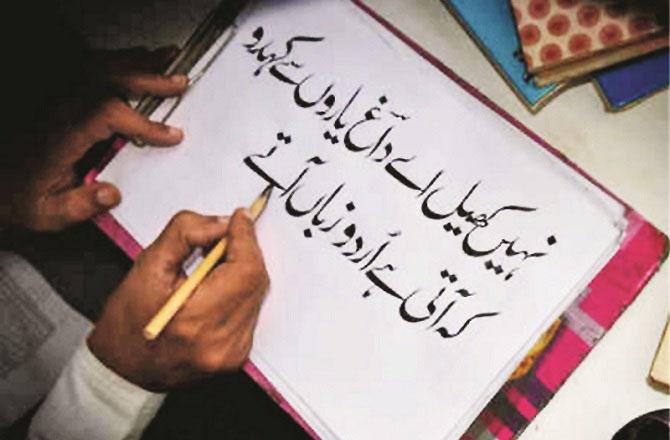 نہیں کھیل اے داغؔ یاروں سے کہدو
کہ آتی ہے اُردو زباں آتے